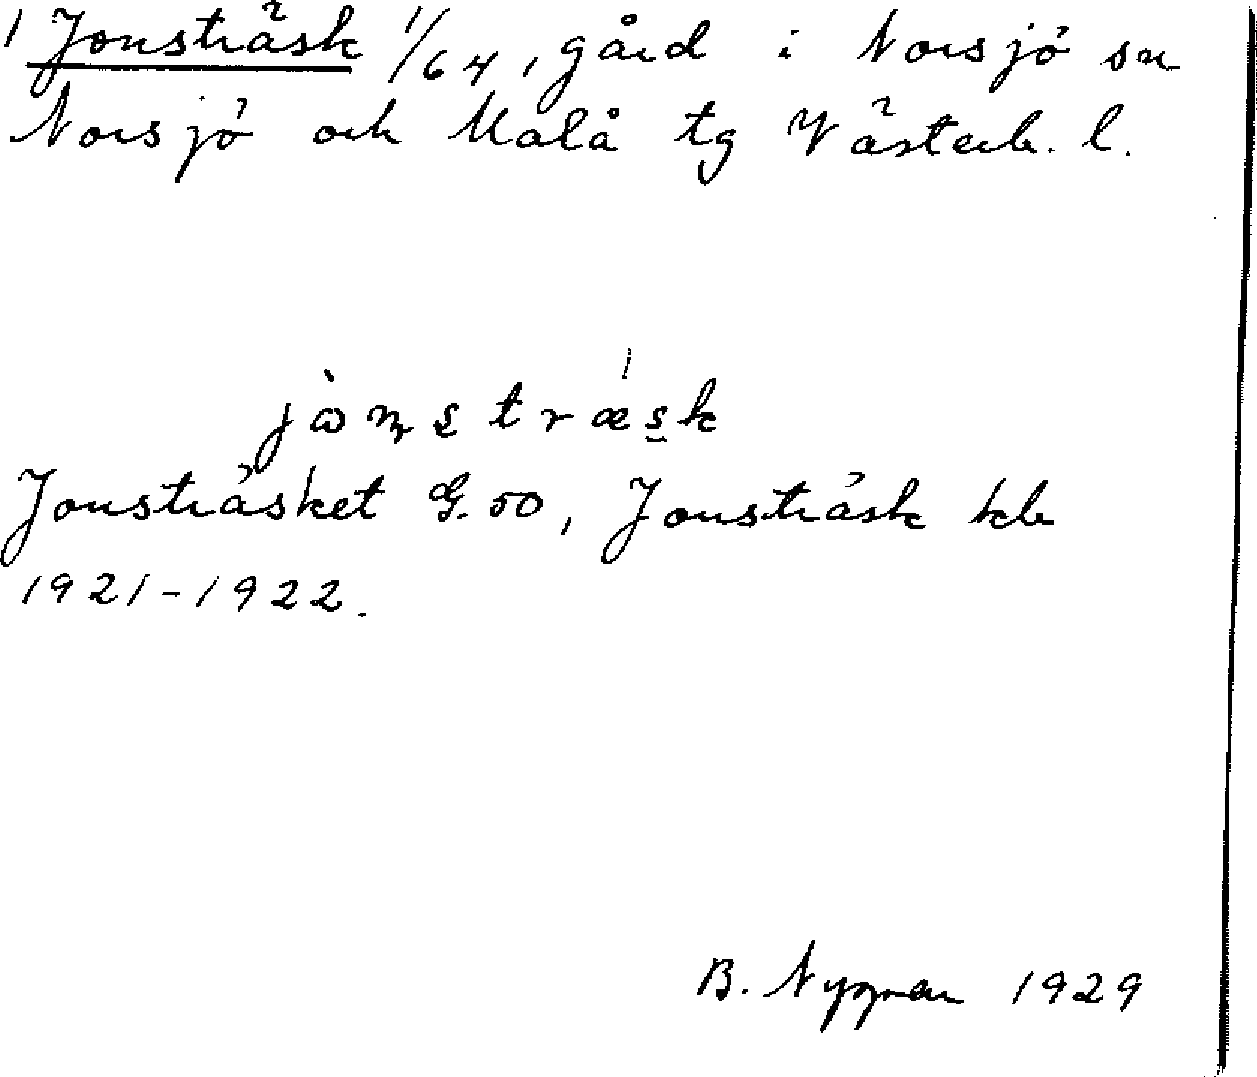 1 Jonsträsk 1/64, gård i Norsjö sn
Norsjö och Malå tg Västerb. l.
jònstræ´sk
Jonsträsket G. 50, Jonsträsk kb
1921-1922.
B. Nygren 1929